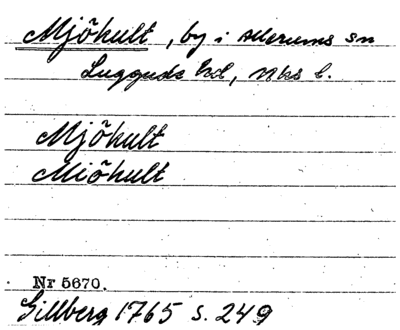 Mjõhult, by i Allerums sn
Luggude hd, Mhs l.
Mjõhult
Miõhult
Nr 5670.
Gillberg 1765 s. 249